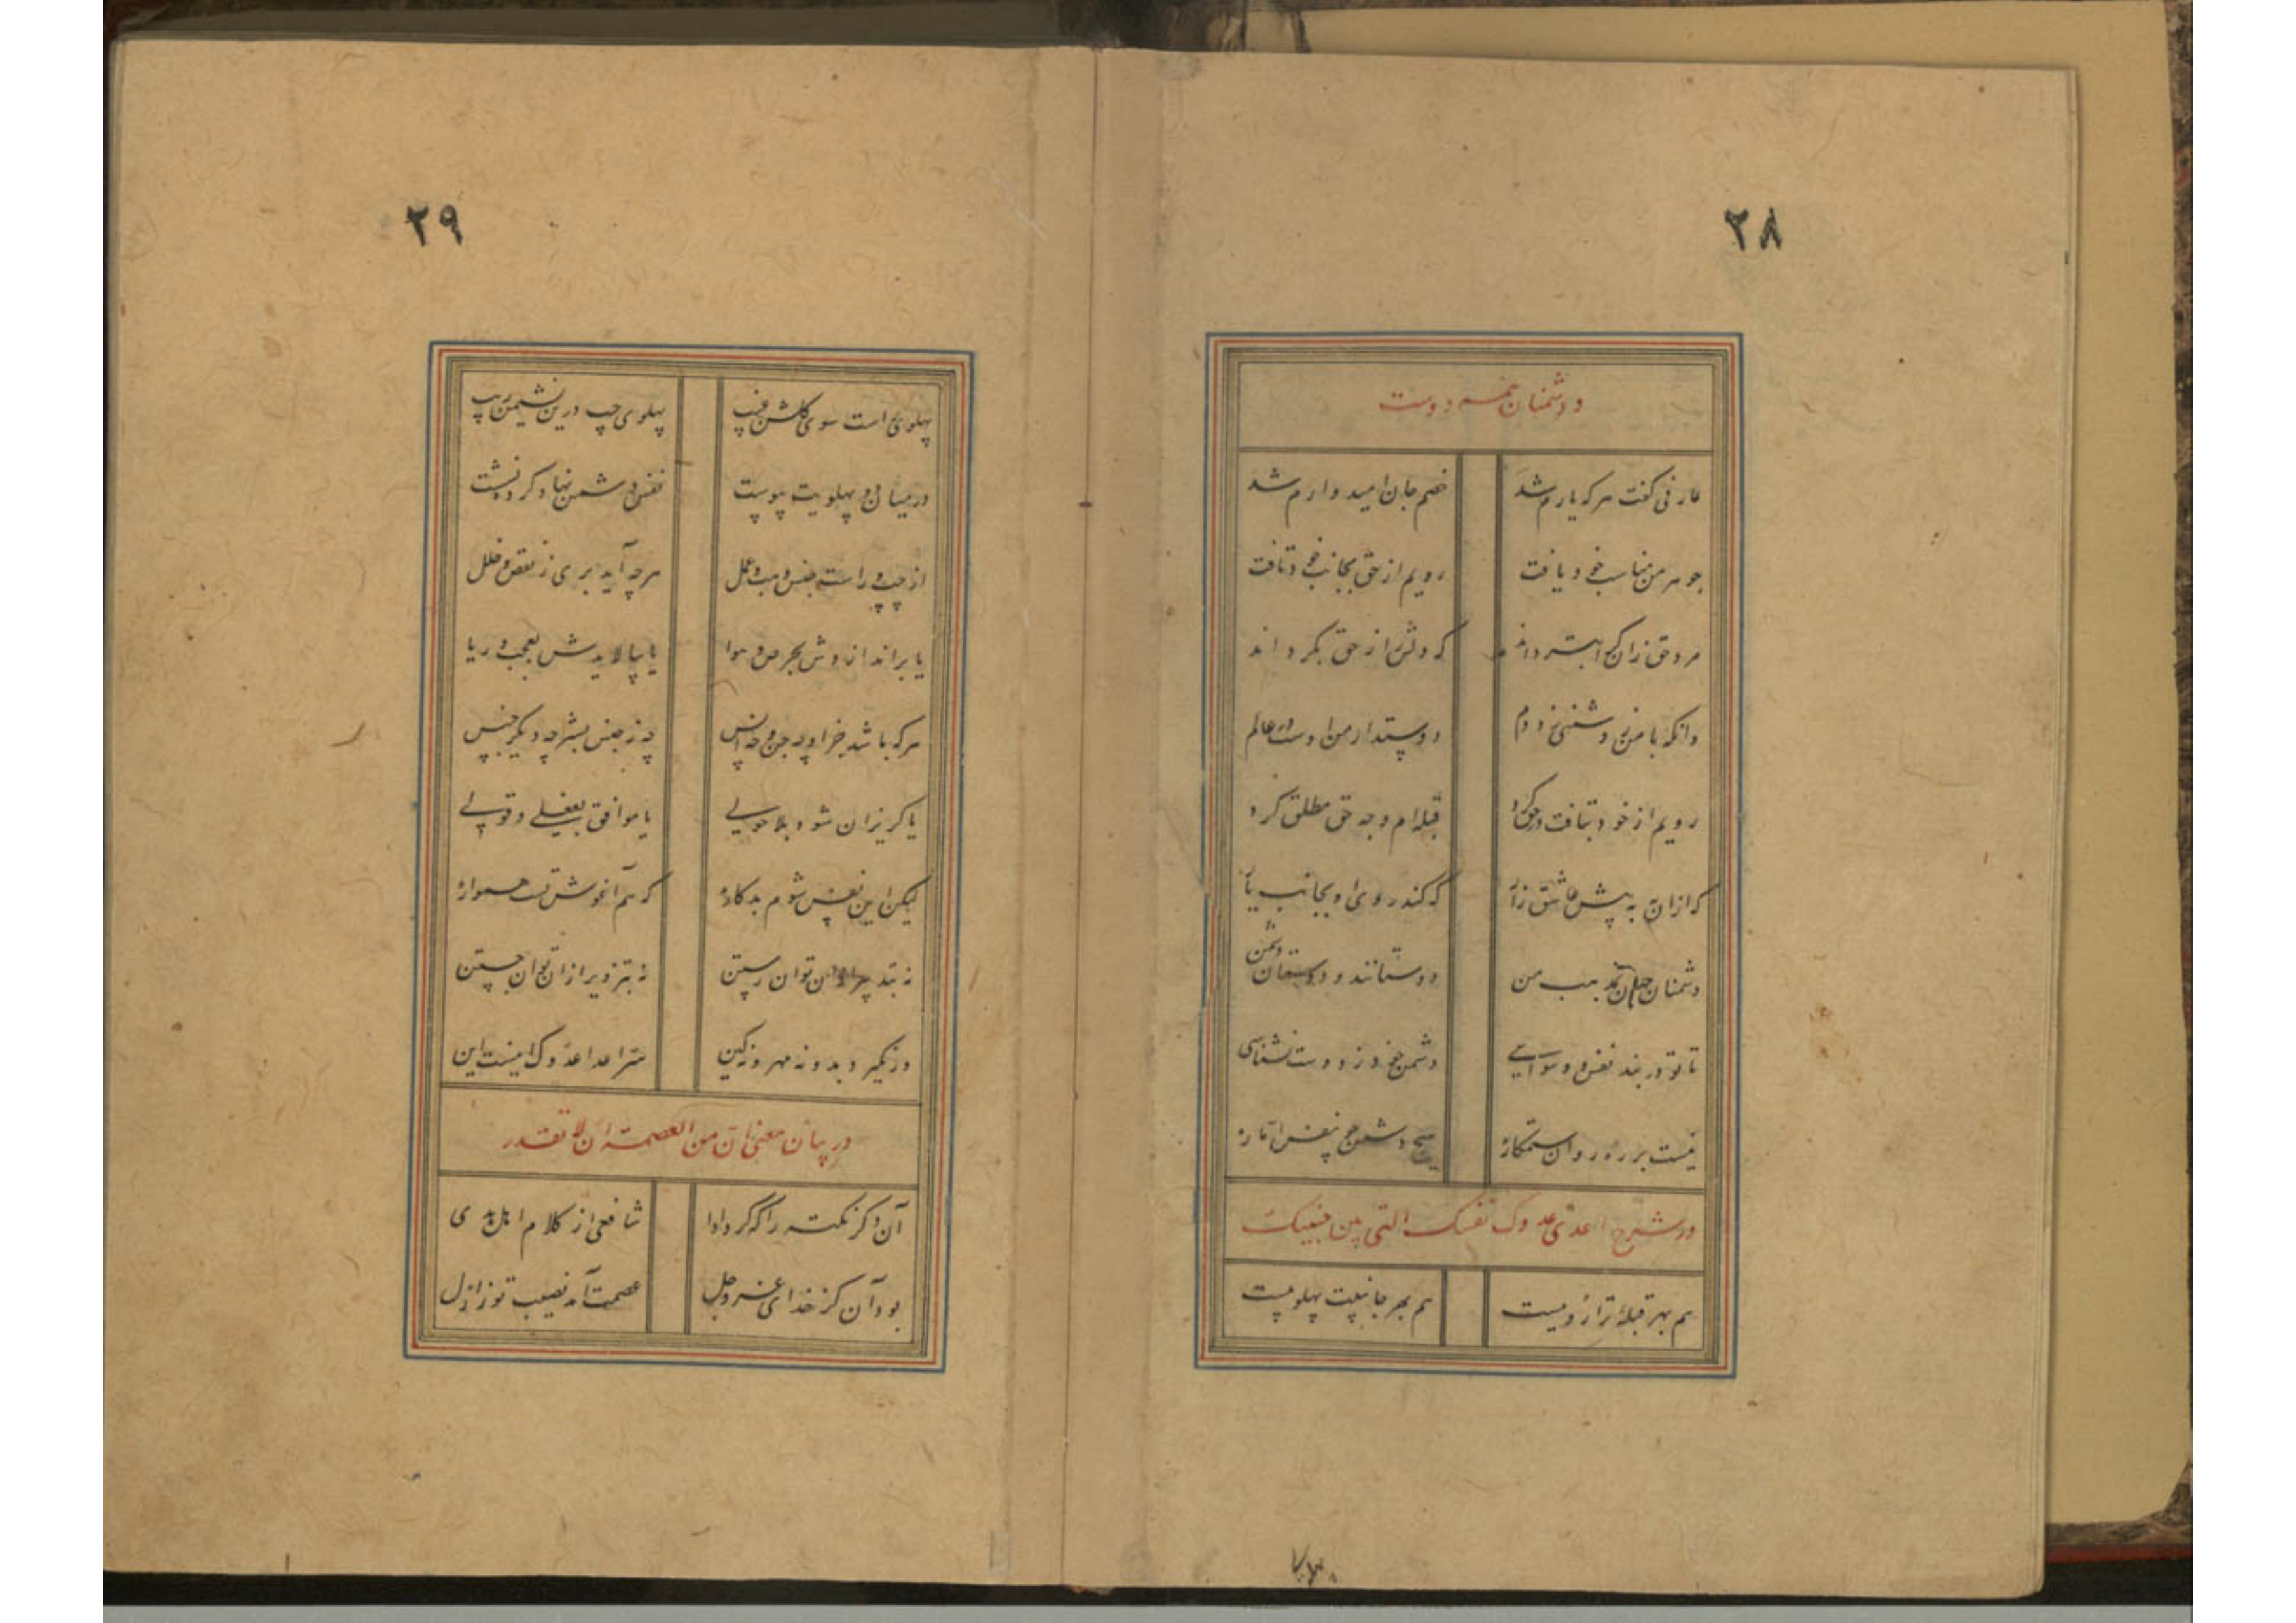 ۲۸
و دشمنان همه دوست
عارفی گفت هر که یارم شد خصم جان امیدوارم شد
جوهر من مناسب خود یافت رویم از حق بجانب خود تافت
مرد حق زان کس ابتر داند که دلش از حق بگرداند
وانکه با من ز دشمنی زد دم دوستدار من اوست در عالم
رویم از خود بتافت در حق کرد قبله‌ام وجه حق مطلق کرد
که ازان به پیش عاشق زار که کند روی او بجانب یار
دشمنان جهان بمذهب من دوستانند و دوستان دشمن
تا تو در بند نفس و وسواسی دشمن خود ز دوست نشناسی
نیست بر رهروان ستمکاره هیچ دشمن چو نفس اماره
در شرح اعدی عدوک نفسک التی بین جنبیک
هم بهر قبله ترا رویست هم بهر جانبیت پهلویست
۲۹
پهلوی راست سوی گلشن غیب پهلوی چپ درین نشیمن ریب
در میان دو پهلویت پیوست نفس دشمن نهاد کرده نشست
از چپ و راست جنس و عمل هرچه آید بری ز نقص و خلل
یا براندازدش بحرص و هوا یا بیالایدش بعجب و ریا
هرکه باشد جز او چه جن و چه انس چه ز جنس بشر چه دیگر جنس
یا گریزان شود بلاحولی یا موافق بفعلی و قولی
لیکن این نفس شوم بدکاره که هم آغوش تست همواره
نه بتدبیر ازان توان رستن نه بتزویر ازان توان جستن
وز نگیرد بدو نه مهر و نه کین سر اعدا عدوک اینست این
در بیان معنی ان من العصمة ان لا تقدر
آن دگر نکته را که کرد ادا شافعی از کلام اهل هدی
بود آن کز خدای عز و جل عصمت آمد نصیب تو ز ازل